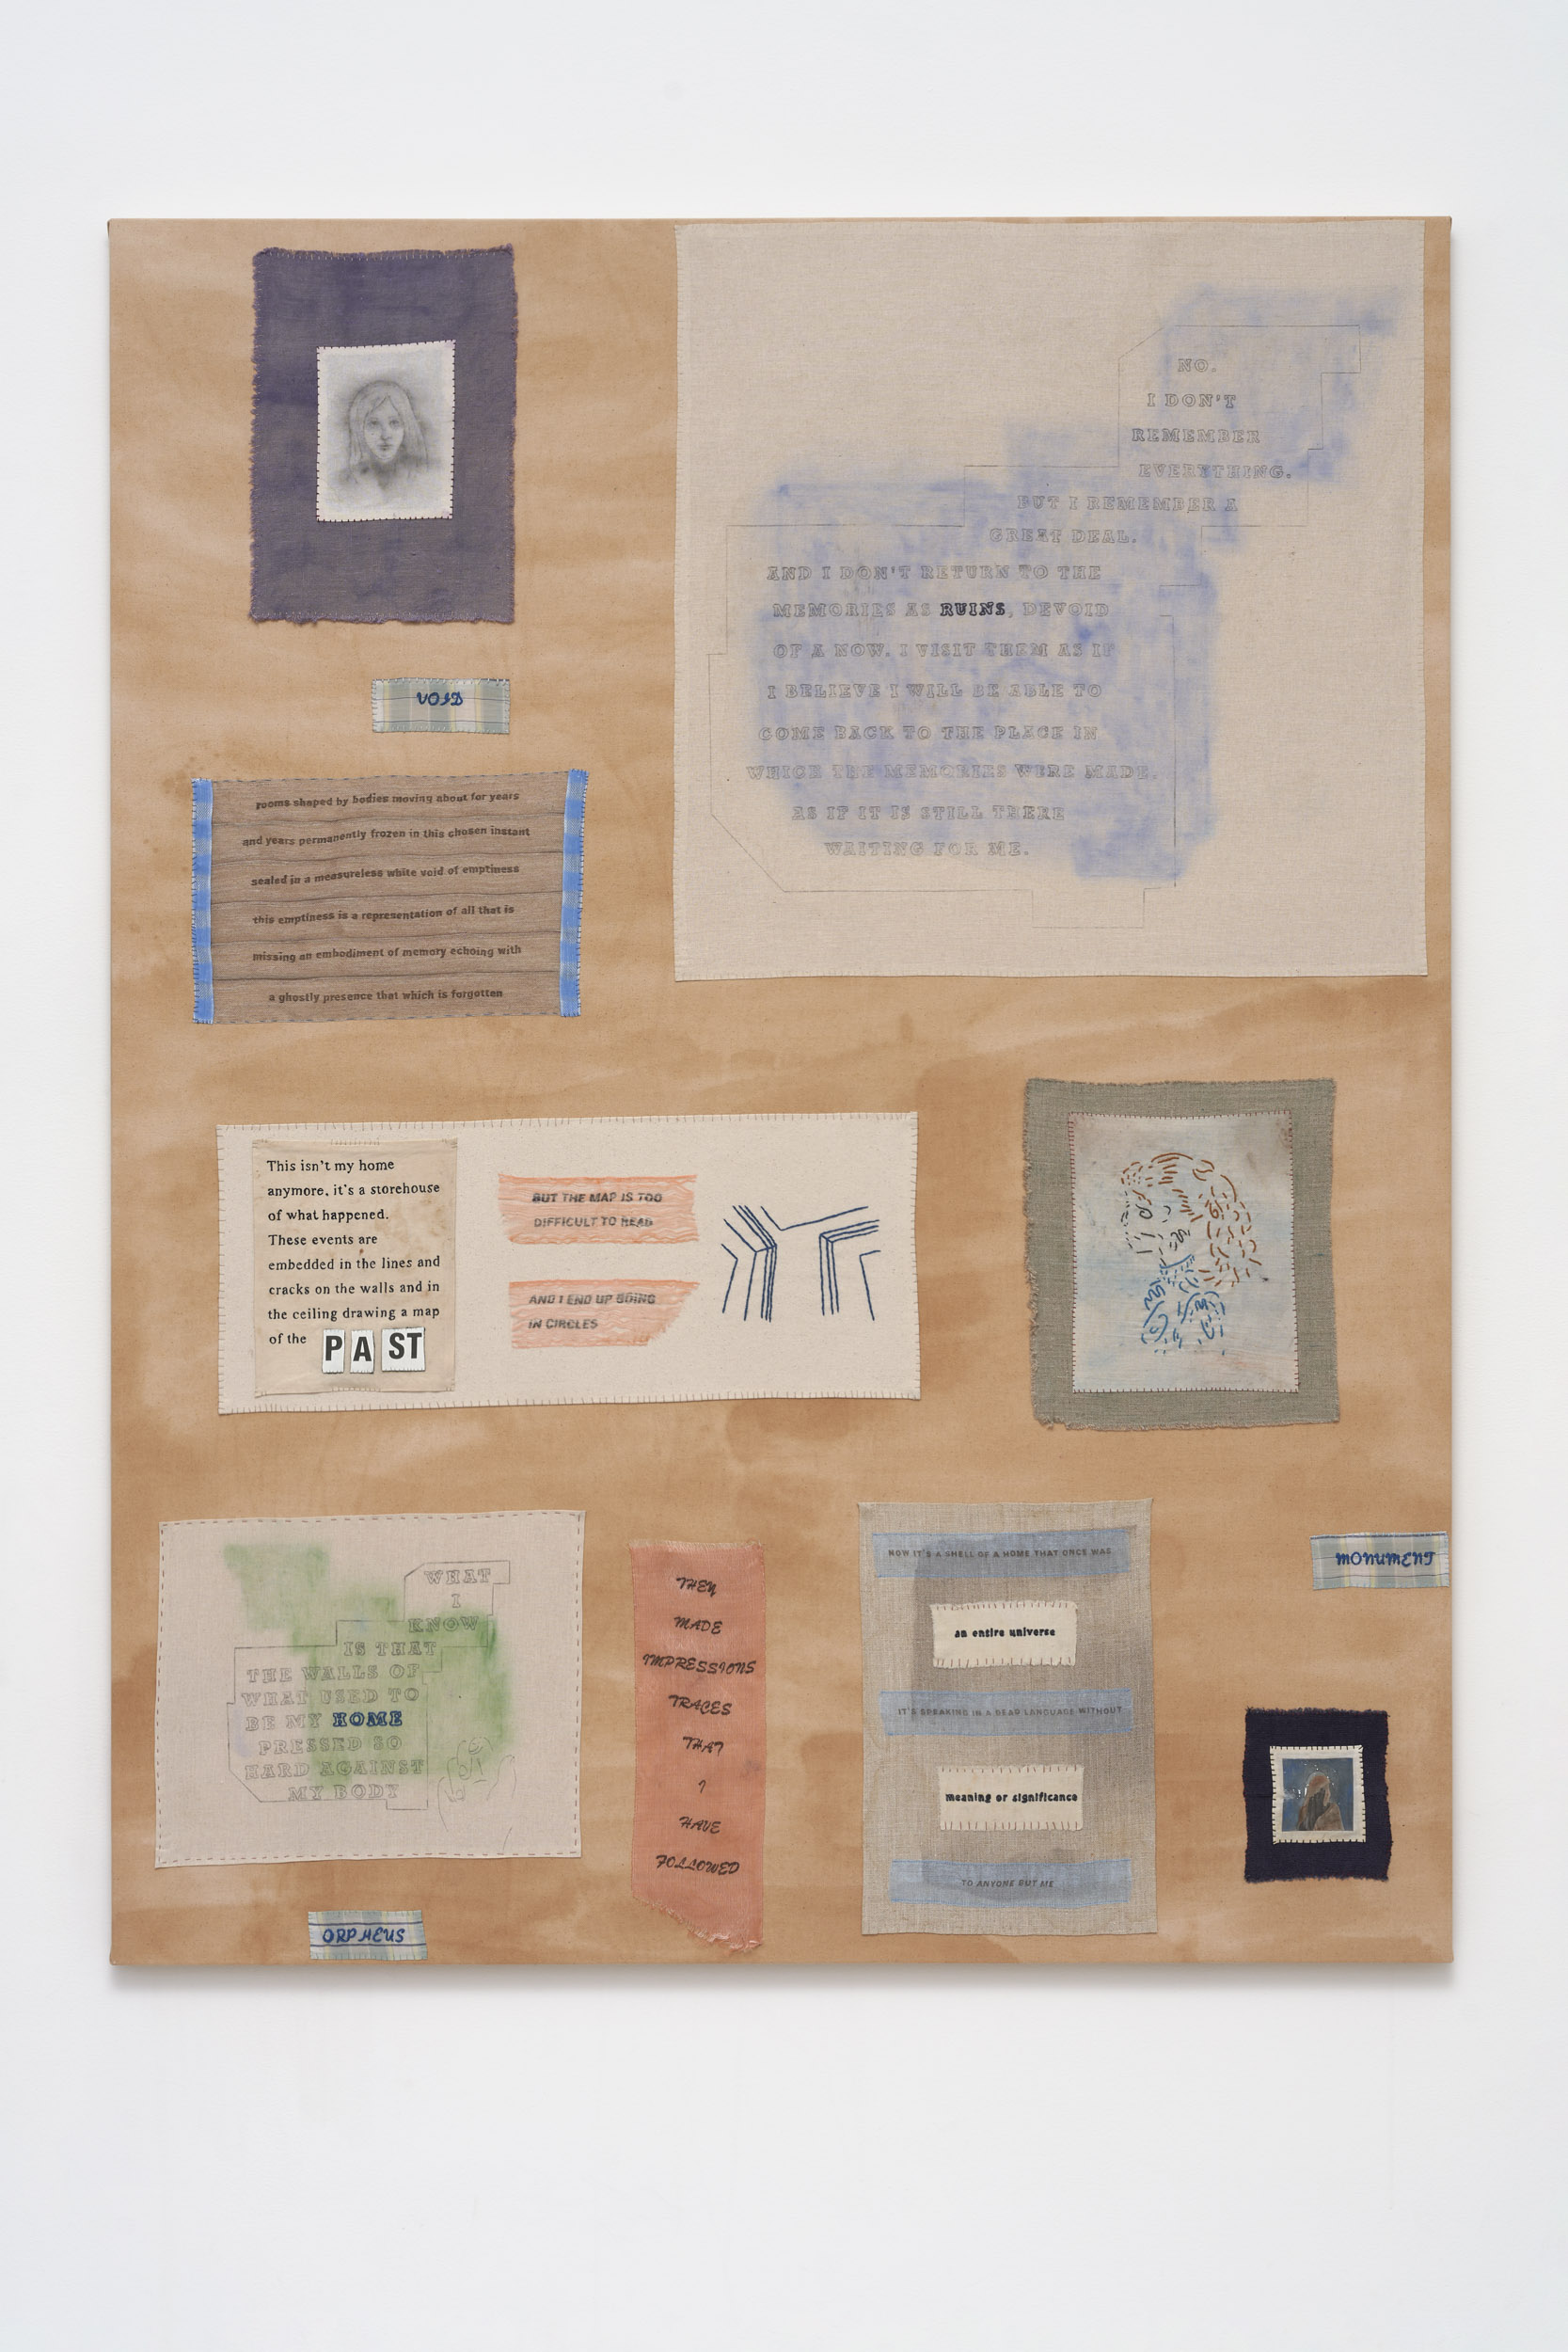 NO.
I DON'T
REMEMBER
EVERYTHING.
BUT I REMEMBER A
GREAT DEAL.
AND I DON'T RETURN TO THE
MEMORIES AS RUINS, DEVOID
OF A NOW. I VISIT THEM AS IF
I BELIEVE I WILL BE ABLE TO
COME BACK TO THE PLACE IN
WHICH THE MEMORIES WERE MADE.
AS IF IT IS STILL THERE
WAITING FOR ME.
VOID
rooms shaped by bodies moving about for years
and years permanently frozen in this chosen instant
sealed in a measureless white void of emptiness
this emptiness is a representation of all that is
missing an embodiment of memory echoing with
a ghostly presence that which is forgotten
This isn't my home
anymore. it's a storehouse
of what happened.
These events are
embedded in the lines and
cracks on the walls and in
the ceiling drawing a map
of the PAST
BUT THE MAP IS TOO
DIFFICULT TO READ
AND I END UP GOING
IN CIRCLES
WHAT
I
KNOW
IS THAT
THE WALLS OF
WHAT USED TO
BE MY HOME
PRESSED SO
HARD AGAINST
MY BODY
ORPHEUS
THEY
MADE
IMPRESSIONS
TRACES
THAT
I
HAVE
FOLLOWED
NOW IT'S A SHELL OF A HOME THAT ONCE WAS
an entire universe
IT'S SPEAKING IN A DEAD LANGUAGE WITHOUT
meaning or significance
TO ANYONE BUT ME
MONUMENT